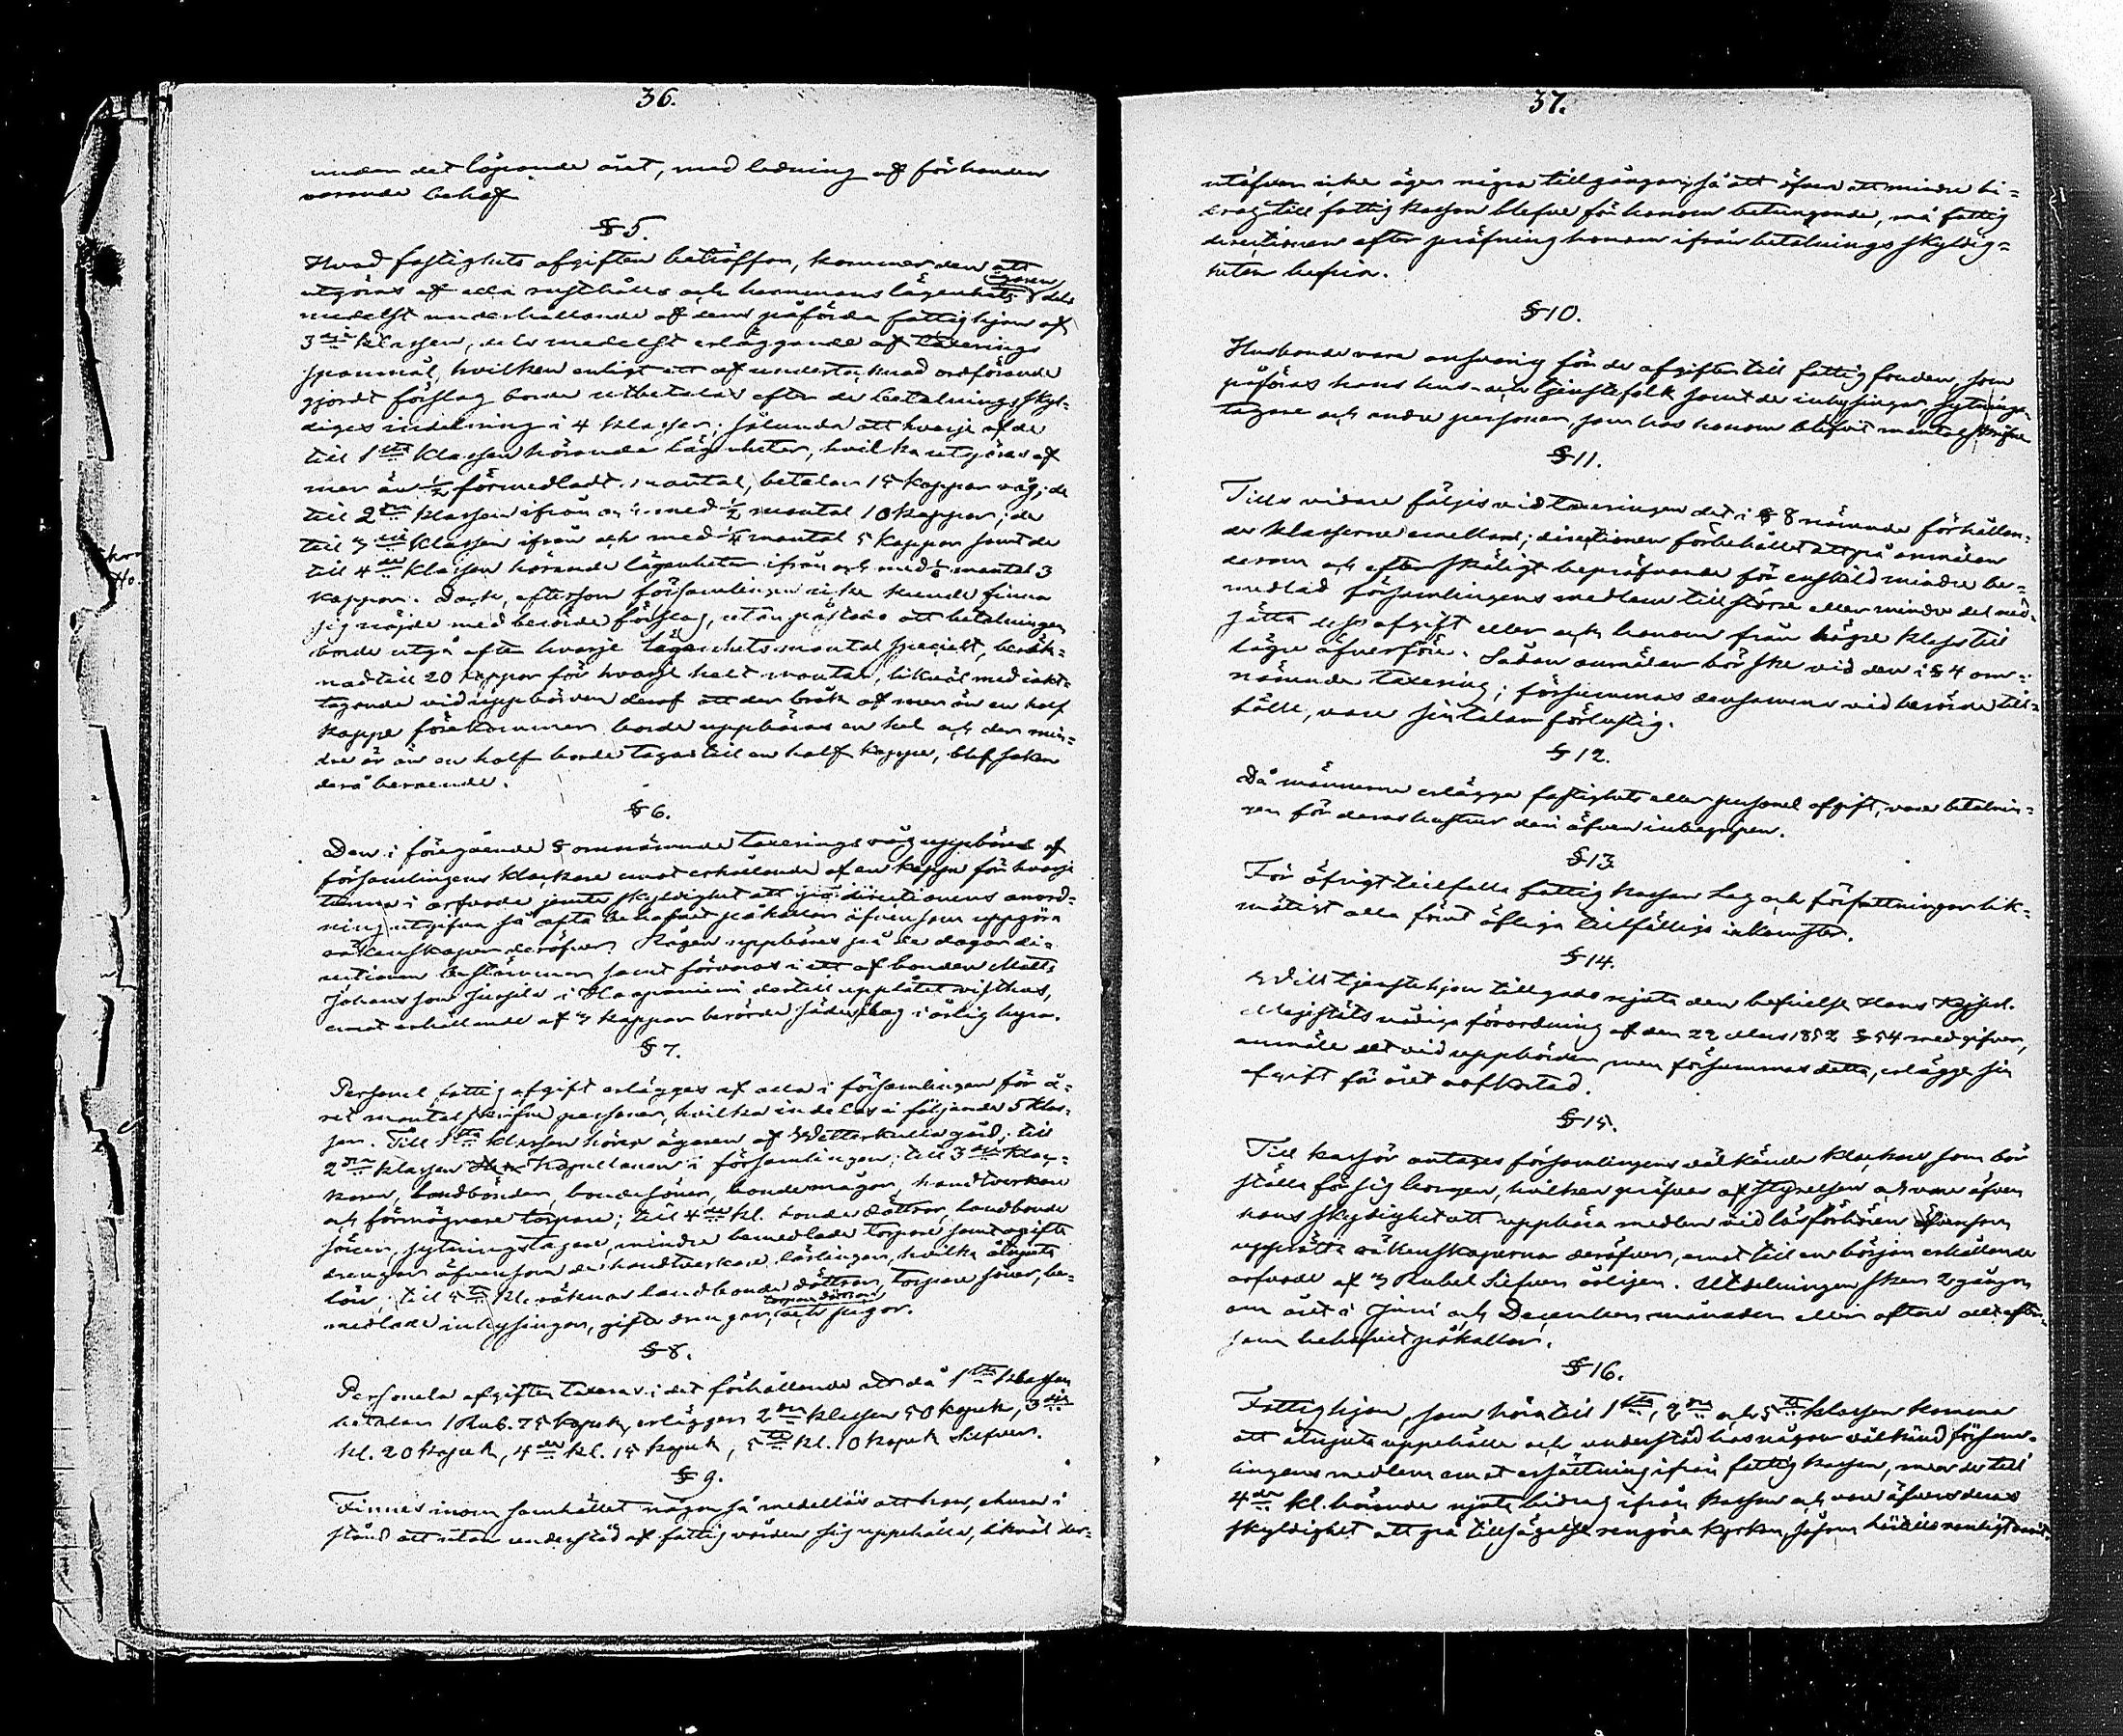 36.
under det löpande året, med ledning af förhanden
varande behof
§ 5.
Hvad fastighets afgiften beträffar, kommer den att
utgöras af alla rusthålls och hemmans lägenhets ägaren dels
medelst underhållande af dem påförda fattighjon af
3dje klassen, dels medelst erläggande af taxerings
spanmål, hvilken enligt ett af undertecknad ordförande
gjordt förslag borde utbetalas efter de betalningsskyl-
diges indelning i 4 klasser; sålunda att hvarje af de
till 1sta klassen hörande lägenheter, hvilka utgöras af
mer än ½ förmedladt mantal, betalar 15 kappar råg; de
till 2dra klassen ifrån och med ½ mantal 10 kappar; de
till 3dje klassen ifrån och med ¼ mantal 5 kappar samt de
till 4de klassen hörande lägenheter ifrån och med mantal 3
kappar. Dock, eftersom församlingen icke kunde finna
sig nöjde med berörde förslag, utan påstodo att betalningen
borde utgå efter hvarje lägenhets mantal speciellt, beräk-
nad till 20 kappar för hvarje helt mantal, likväl med iakt-
tagande vid uppbörden deraf att der bråk af mer än en half
kappe förekommer borde uppbäras en hel och der min-
dre är än en half borde tagas till en half kappe, blef saken
derå beroende.
§ 6.
Den i föregående § omnämnde taxerings råg uppbäres af
församlingens klockare emot erhållande af en kappe för hvarje
tunna i arfvode jemte skyldighet att på direktionens anord-
ning utgifva så ofta behofvet påkallar äfvensom uppgöra
räkenskaper deröfver. Rågen uppbäres på de dagar di-
rectionen bestämmer samt förvaras i ett af bonden Matts
Johansson Jussila i Haapaniemi dertill upplåtet visthus,
emot erhållande af 3 kappar berörde sädesslag i årlig hyra.
§ 7.
Personel fattig afgift erlägges af alla i församlingen för å-
ret mantalskrifne personer, hvilka indelas i följande 5 klas-
ser. Till 1sta klassen hörer ägaren af Wetterkulla gård; till
2dra klassen Kapellanen i församlingen; till 3dje kloc-
karen, landbönder, bondesöner, bondemågar, handtverkare
och förmögnare torpare; till 4de kl. bonde döttrar, landbonde
söner, sytningstagare, mindre bemedlade torpare samt ogifte
drengar äfvensom de handtverkare lärlingar, hvilka åtnjuta
lön; till 5te kl. räknas landbonde döttrar, torpare söner, be-
medlade inhysingar, gifte drengar, torpare döttrar och pigor.
§ 8.
Personela afgiften taxeras i det förhållande att då 1sta klassen
betalar 1 Rub. 75 kopek, erlägger 2dra klassen 50 kopek, 3dje
kl. 20 kopek, 4de kl. 15 kopek, 5te kl. 10 kopek Silfver.
§ 9.
Finnes inom samhället någon så medellös att han, ehuru i
stånd att utan understöd af fattigvården sig uppehålla, likväl der-
37.
utöfver icke äger några tillgångar, så att äfven ett mindre bi-
drag till fattig kassan blefve för honom betungande, må fattig
directionen efter pröfning honom ifrån betalnings skyldig-
heten befria.
§ 10.
Husbonde vare ansvarig för de afgifter till fattig fonden, som
påföras hans hus- och tjenstefolk samt de inhysingar, sytnings-
tagare och andre personer, som hos honom blifvit mantalskrifne
§ 11.
Tills vidare följes vid taxeringen det i § 8 nämnde förhållan-
de klasserne emellan; directionen förbehållet att på anmälan
derom och efter skäligt bepröfvande för enskild mindre be-
medlad församlingens medlem till större eller mindre del ned-
sätta dess afgift eller och honom från högre klass till
lägre öfverföra. Sådan anmälan bör ske vid den i § 4 om-
nämnde taxering; försummas densamma vid berörde till-
fälle, vare sin talan förlustig.
§ 12.
Då männerna erlägga fastighets eller personel afgift, vare betalnin-
gen för deras hustrur deri äfven inbegripen.
§ 13.
För öfrigt tillfalla fattig kassan Lag och författningar lik-
mätigt alla förut öflige tillfällige inkomster.
§ 14.
Vill tjenstehjon tillgodo njuta den befrielse Hans Kejserl.
Majestäts nådiga förordning af den 22 Mars 1852 § 54 medgifver,
anmäle det vid uppbörden, men försummas detta, erlägge sin
afgift för året oafkortad.
§ 15.
Till kassör antages församlingens välkände klockare, som bör
ställa för sig borgen, hvilken pröfvas af styrelsen och vare äfven
hans skyldighet att uppbära medlen vid läsförhören äfvensom
upprätta räkenskaperna deröfver, emot till en början erhållande
arfvode af 3 Rubel Silfver årligen. Utdelningen sker 2 gånger
om året i Juni och December månader eller oftare allt efter-
som behofvet påkallar.
§ 16.
Fattighjon, som höra till 1sta, 2dra och 5te klassen komma
att åtnjuta uppehälle och understöd hos någon välkänd försam-
lingens medlem emot ersättning ifrån fattig kassan, men de till
4de kl. hörande njuta bidrag ifrån kassan och vare äfven deras
skyldighet att på tillsägelse rengöra kyrkan, såsom hittills vanligt varit.